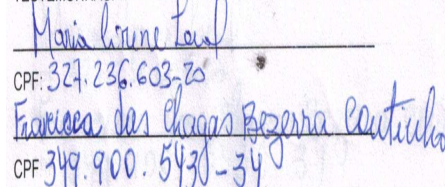 Maria Lirene Leal
CPF: 327.236.603-20
Francisca das Chagas Bezerra Coutinho
CPF 349.900.543-34